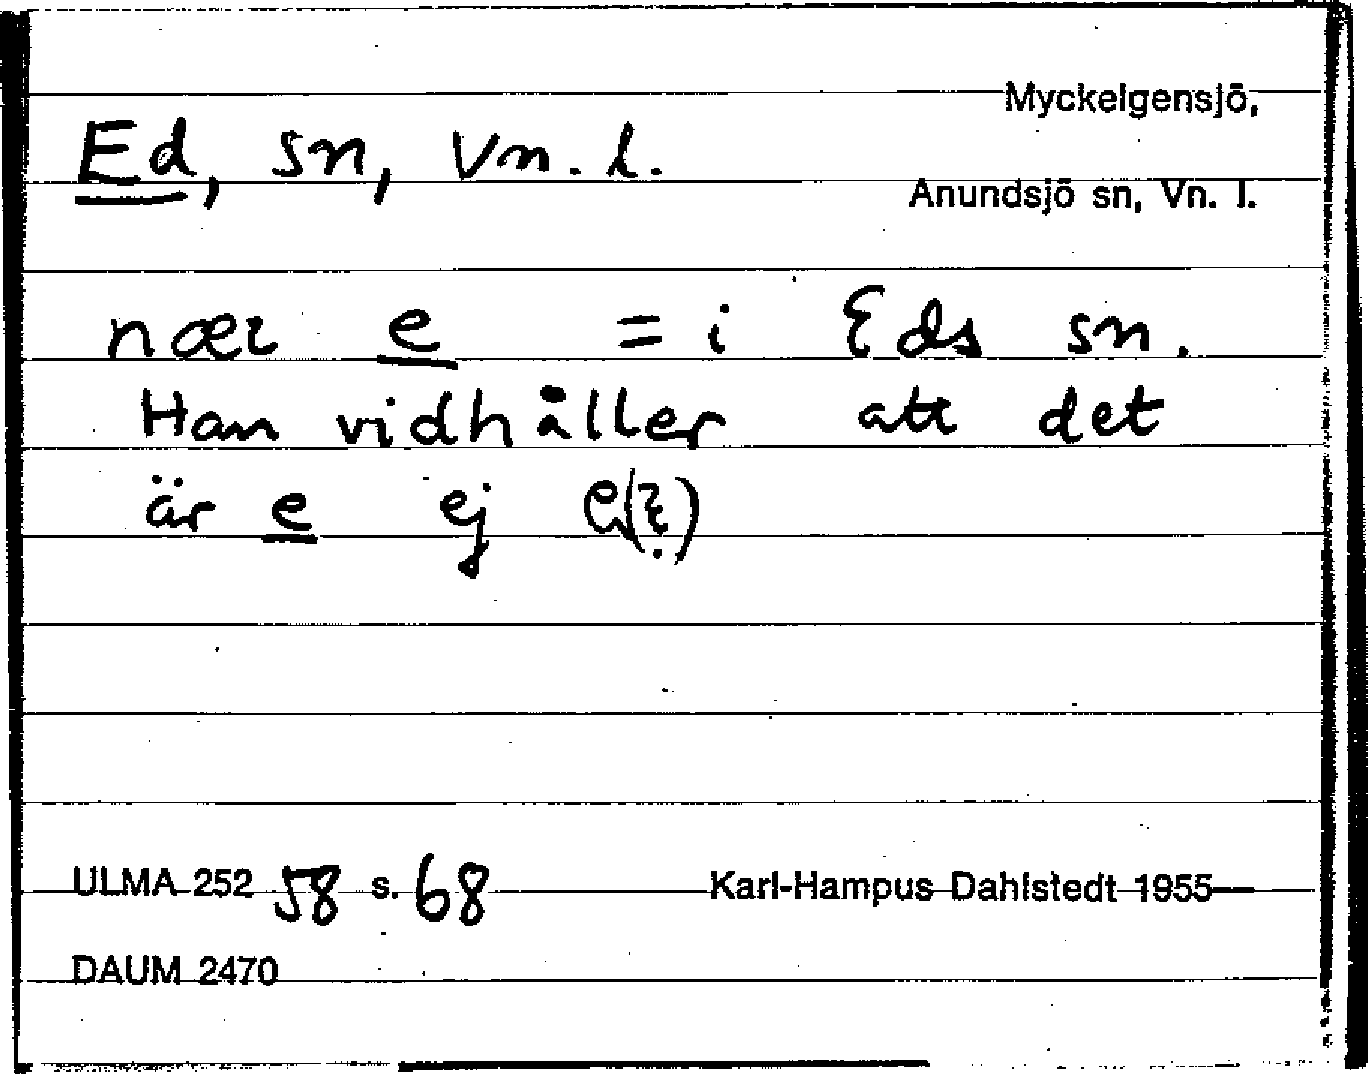 Myckelgensjö,
Ed, sn, Vn. l.
Anundsjö sn, Vn. l.
nær e = i Eds sn.
Han vidhåller att det
är e ej e(?)
ULMA 252 58 s. 68 Karl-Hampus Dahlstedt 1955
DAUM 2470